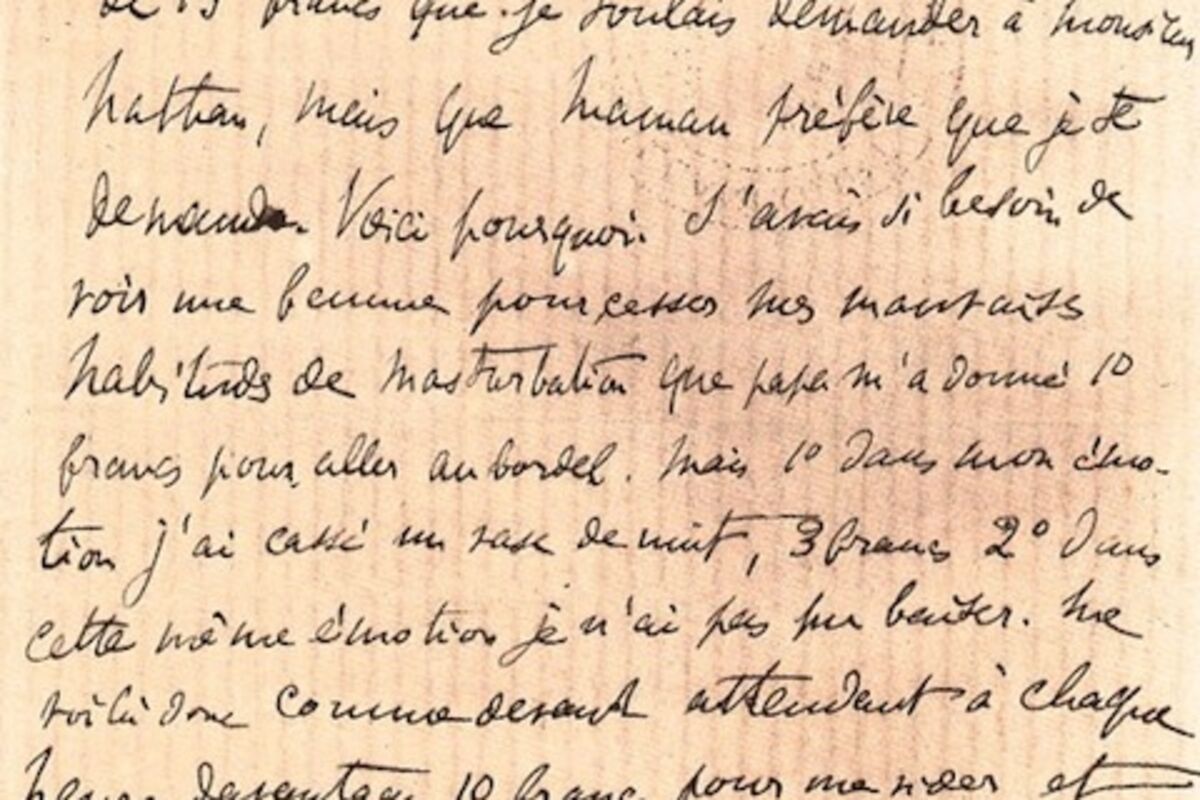 de 13 francs que je voulais demander à monsieur
Nathan, mais que Maman préfère que je te
demande. Voici pourquoi. J'avais si besoin de
voir une femme pour cesser mes mauvaises
habitudes de masturbation que papa m'a donné 10
francs pour aller au bordel. Mais 1° dans mon émo-
tion j'ai cassé un vase de nuit, 3 francs 2° dans
cette même émotion je n'ai pas pu baiser. Me
voilà donc comme devant attendant à chaque
heure davantage 10 francs pour me vider et